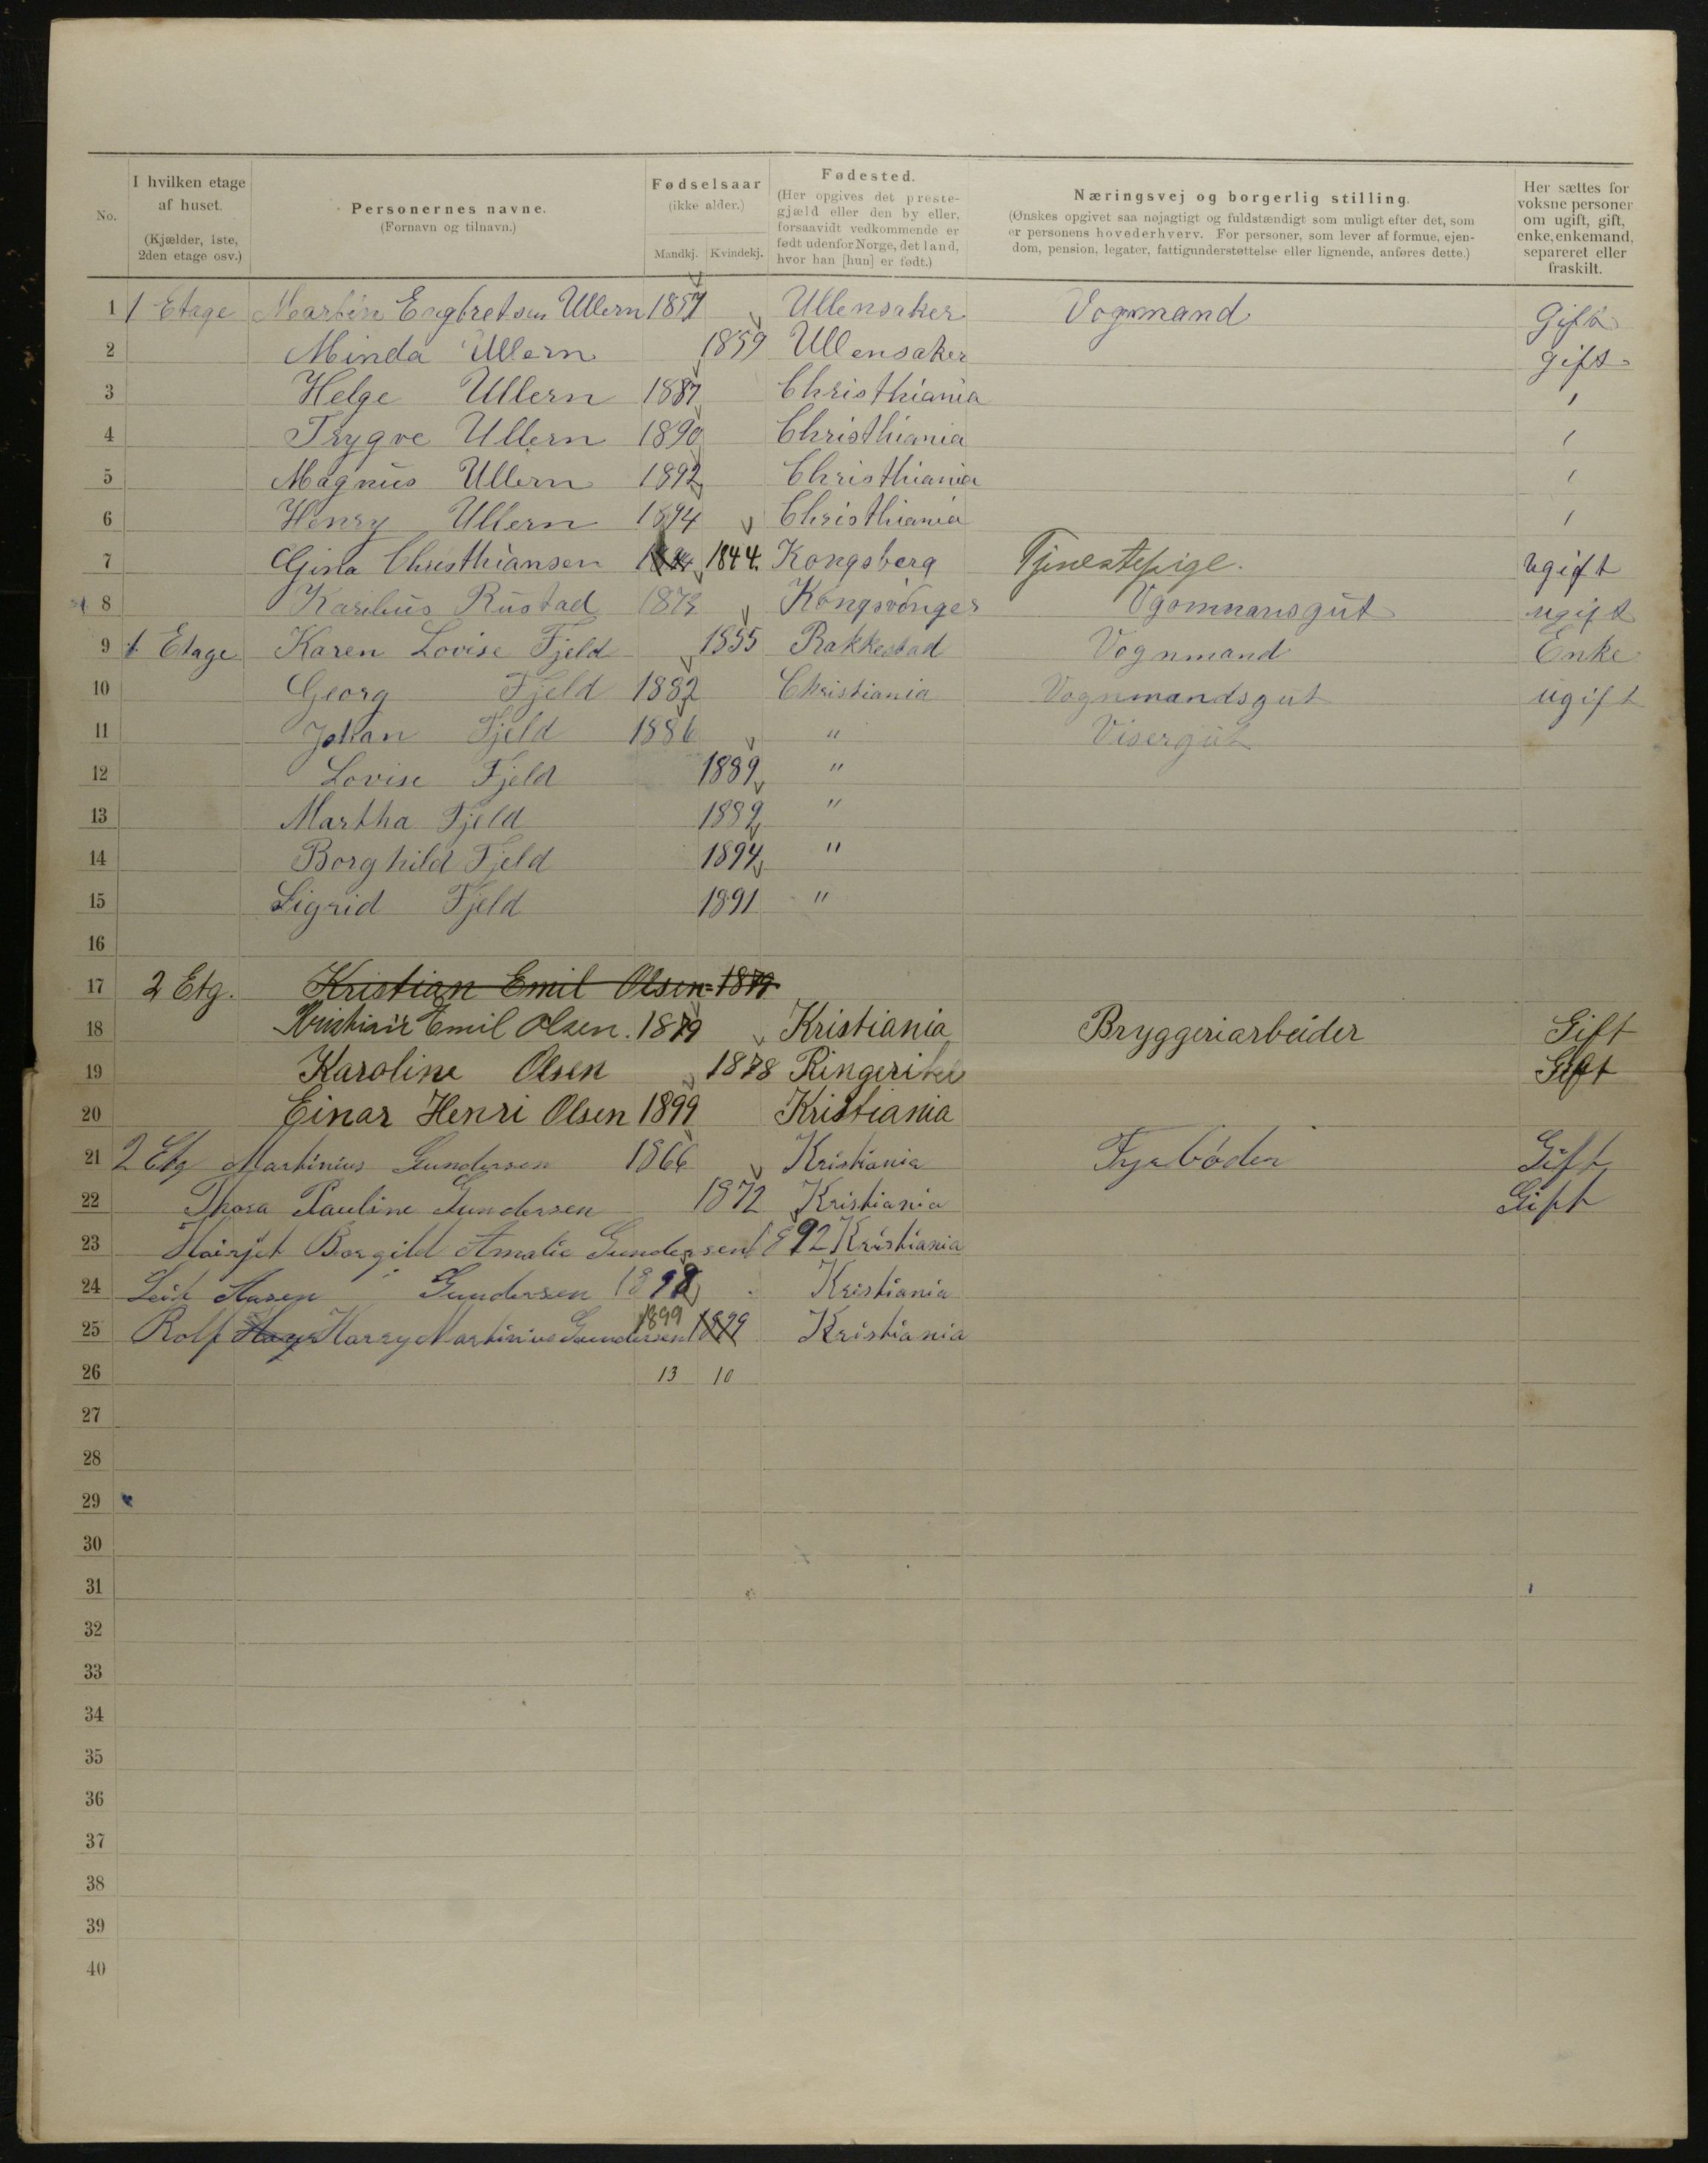 No. I hvilken etage af huset. (Kjælder, 1ste, 2den etage osv.) Personernes navne. (Fornavn og tilnavn.) Fødselsaar (ikke alder.) Mandkj. Kvindekj. Fødested. (Her opgives det prestegjæld eller den by eller, forsaavidt vedkommende er født udenfor Norge, det land, hvor han [hun] er født.) Næringsvej og borgerlig stilling. (Ønskes opgivet saa nøjagtigt og fuldstændigt som muligt efter det, som er personens hovederhverv. For personer, som lever af formue, ejendom, pension, legater, fattigunderstøttelse eller lignende, anføres dette.) Her sættes for voksne personer om ugift, gift, enke, enkemand, separeret eller fraskilt.
1 1 Etage Martin Engbretsen Ullern 1857 Ullensaker Vognmand Gift
2 Minda Ullern 1859 Ullensaker gift
3 Helge Ullern 1887 Christhiania
4 Trygve Ullern 1890 Christhiania
5 Magnus Ullern 1892 Christhiania
6 Henry Ullern 1894 Christhiania
7 Gina Christhiansen 1844 Kongsberg Tjenestepige. ugift
8 Rustad Kongsvinger Vgomnansgut ugift
9 1 Etage Karen Lovise Fjeld 1855 Rakkestad Vognmand Enke
10 Georg Fjeld 1882 Christiania Vognmandsgut ugift
11 Johan Fjeld 1886 " Visergut
12 Lovise Fjeld 1889 "
13 Martha Fjeld 1889 "
14 Borghild Fjeld 1894 "
15 Sigrid Fjeld 1891 "
16
17 2 Etg. Kristian Emil Olsen 1879
18 Kristian Emil Olsen. 1879 Kristiania Bryggeriarbeider Gift
19 Karoline Olsen 1878 Ringerike Gift
20 Einar Henri Olsen 1899 Kristiania
21 2 Etg Martinius Gundersen 1866 Kristiania Fyrbøder Gift
22 Thora Pauline Gundersen 1872 Kristiania Gift
23 Borgild Amalie Gundersen 1892 Kristiania
24 Gundersen 1898 Kristiania
25 Rolf Harry Martinius Gundersen 1899 1899 Kristiania
26 13 10
27
28
29
30
31
32
33
34
35
36
37
38
39
40